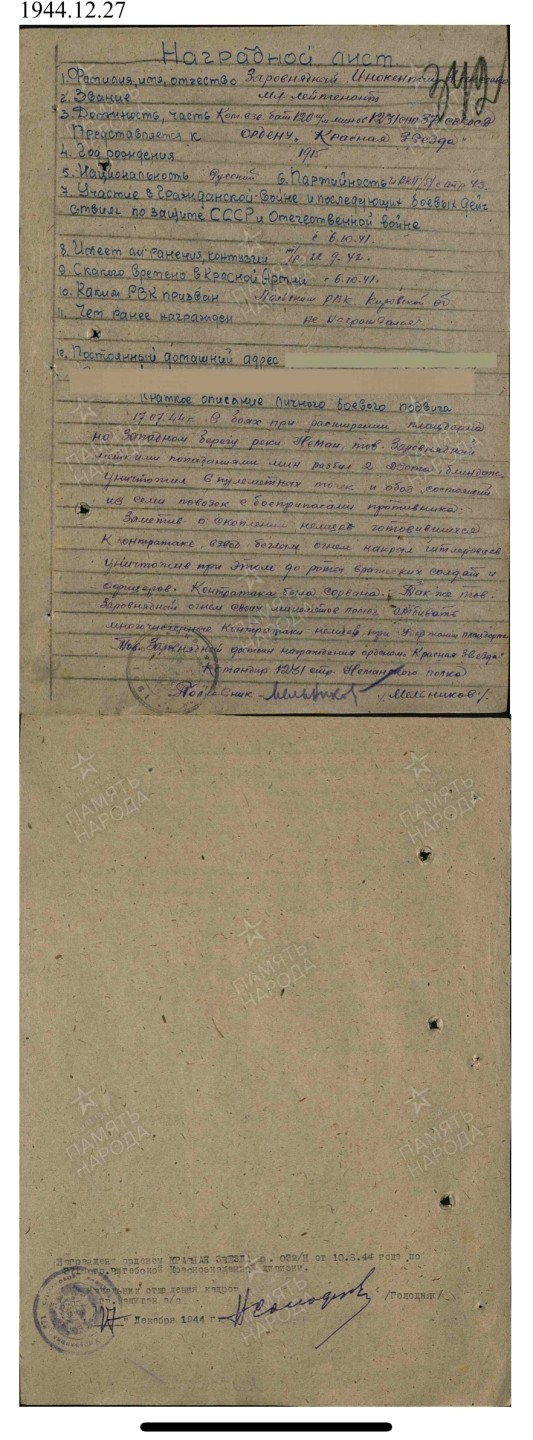 1944.12.27
Наградной лист
1. Фамилия, имя, отчество Заровнядный Инокентий
2. Звание мл. лейтенант
3. Должность, часть Ком. взв. бат. 120 м/м мин. 1231 стр.
Представляется к ордену "Красная Звезда"
4. Год рождения 1915
5. Национальность Русский 6. Партийность
7. Участие в Гражданской войне и последующих боевых дейс
ствиях по защите СССР и Отечественной войне
с 6.10.41.
8. Имеет ли ранения, контузии 9.42.
9. С какого времени в Красной Армии с 6.10.41.
10. Каким РВК призван РВК Кировской об.
11. Чем ранее награжден не награждался
12. Постоянный домашний адрес
Краткое описание личного боевого подвига
17.07.44 г. В боях при расширении плацдарма
на Западном берегу реки Неман, тов. Заровнядный
меткими попаданиями мин разбил 2 дзота, блиндаж,
уничтожил 6 пулеметных точек и обоз состоящий
из семи повозок с боеприпасами противника.
Заметив о скоплении немцев готовившихся
к контратаке, взвод беглым огнем накрыл гитлеровцев
уничтожив при этом до роты вражеских солдат и
офицеров. Контратака была сорвана. Так же тов.
Заровнядный огнем своих минометов помог отбивать
многочисленные контратаки немцев при удержании плацдарма
Тов. Заровнядный достоин награждения орденом "Красная Звезда"
Командир 1231 стр. Неманского полка
Полковник Мельников /Мельников/.
ПАМЯТЬ НАРОДА
ПАМЯТЬ НАРОДА
ПАМЯТЬ НАРОДА
ПАМЯТЬ НАРОДА
ПАМЯТЬ НАРОДА
Награжден орденом КРАСНАЯ ЗВЕЗДА 032/Н от 10.8.44 года по
стр. Витебской Краснознаменной дивизии.
Начальник отделения кадров
/Голодник/
"27" Декабря 1944 г